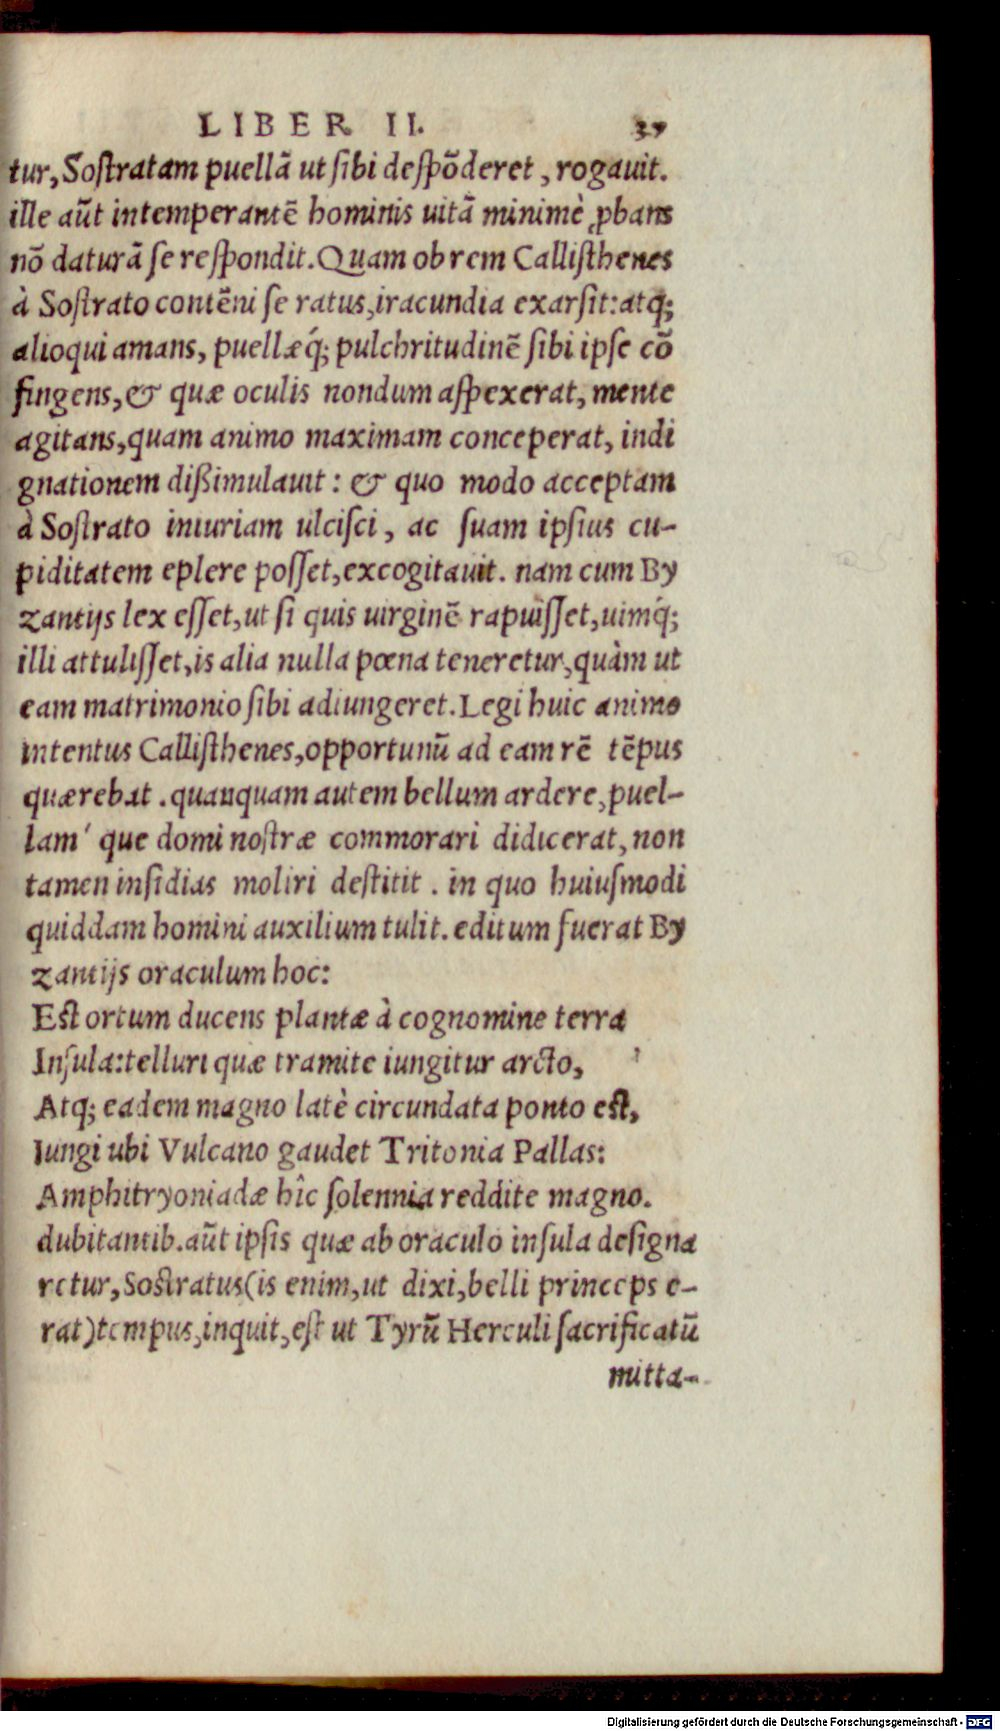 LIBER II. 37
tur, Sostratam puellā ut sibi despōderet, rogauit.
ille aūt intemperantē hominis uitā minimè ꝓbans
nō daturā se respondit. Quam ob rem Callisthenes
à Sostrato contēni se ratus, iracundia exarsit: atq;
alioqui amans, puellæq́; pulchritudinē sibi ipse cō
fingens, & quæ oculis nondum aspexerat, mente
agitans, quam animo maximam conceperat, indi
gnationem dißimulauit: & quo modo acceptam
à Sostrato iniuriam ulcisci, ac suam ipsius cu-
piditatem eplere posset, excogitauit. nam cum By
zantijs lex esset, ut si quis uirginē rapuisset, uimq́;
illi attulisset, is alia nulla pœna teneretur, quàm ut
eam matrimonio sibi adiungeret. Legi huic animo
intentus Callisthenes, opportunū ad eam rē tēpus
quærebat. quanquam autem bellum ardere, puel-
lam' que domi nostræ commorari didicerat, non
tamen insidias moliri destitit. in quo huiusmodi
quiddam homini auxilium tulit. editum fuerat By
zantijs oraculum hoc:
Est ortum ducens plantæ à cognomine terra
Insula: telluri quæ tramite iungitur arcto,
Atq; eadem magno latè circundata ponto est,
Iungi ubi Vulcano gaudet Tritonia Pallas:
Amphitryoniadæ hîc solennia reddite magno.
dubitantib. aūt ipsis quæ ab oraculo insula designa
retur, Sostratus (is enim, ut dixi, belli princeps e-
rat) tempus, inquit, est ut Tyrū Herculi sacrificatū
mitta-
Digitalisierung gefördert durch die Deutsche Forschungsgemeinschaft - DFG